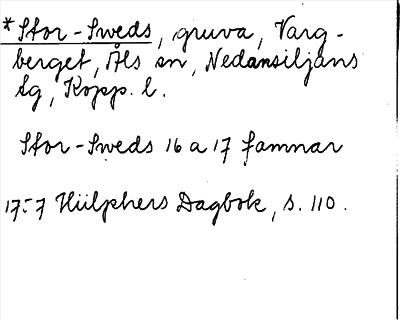 *Stor-Sweds, gruva, Varg-
berget, Åls sn, Nedansiljans
tg, Kopp. l.
Stor-Sweds 16 a 17 famnar
1757 Hülphers Dagbok, s. 110.